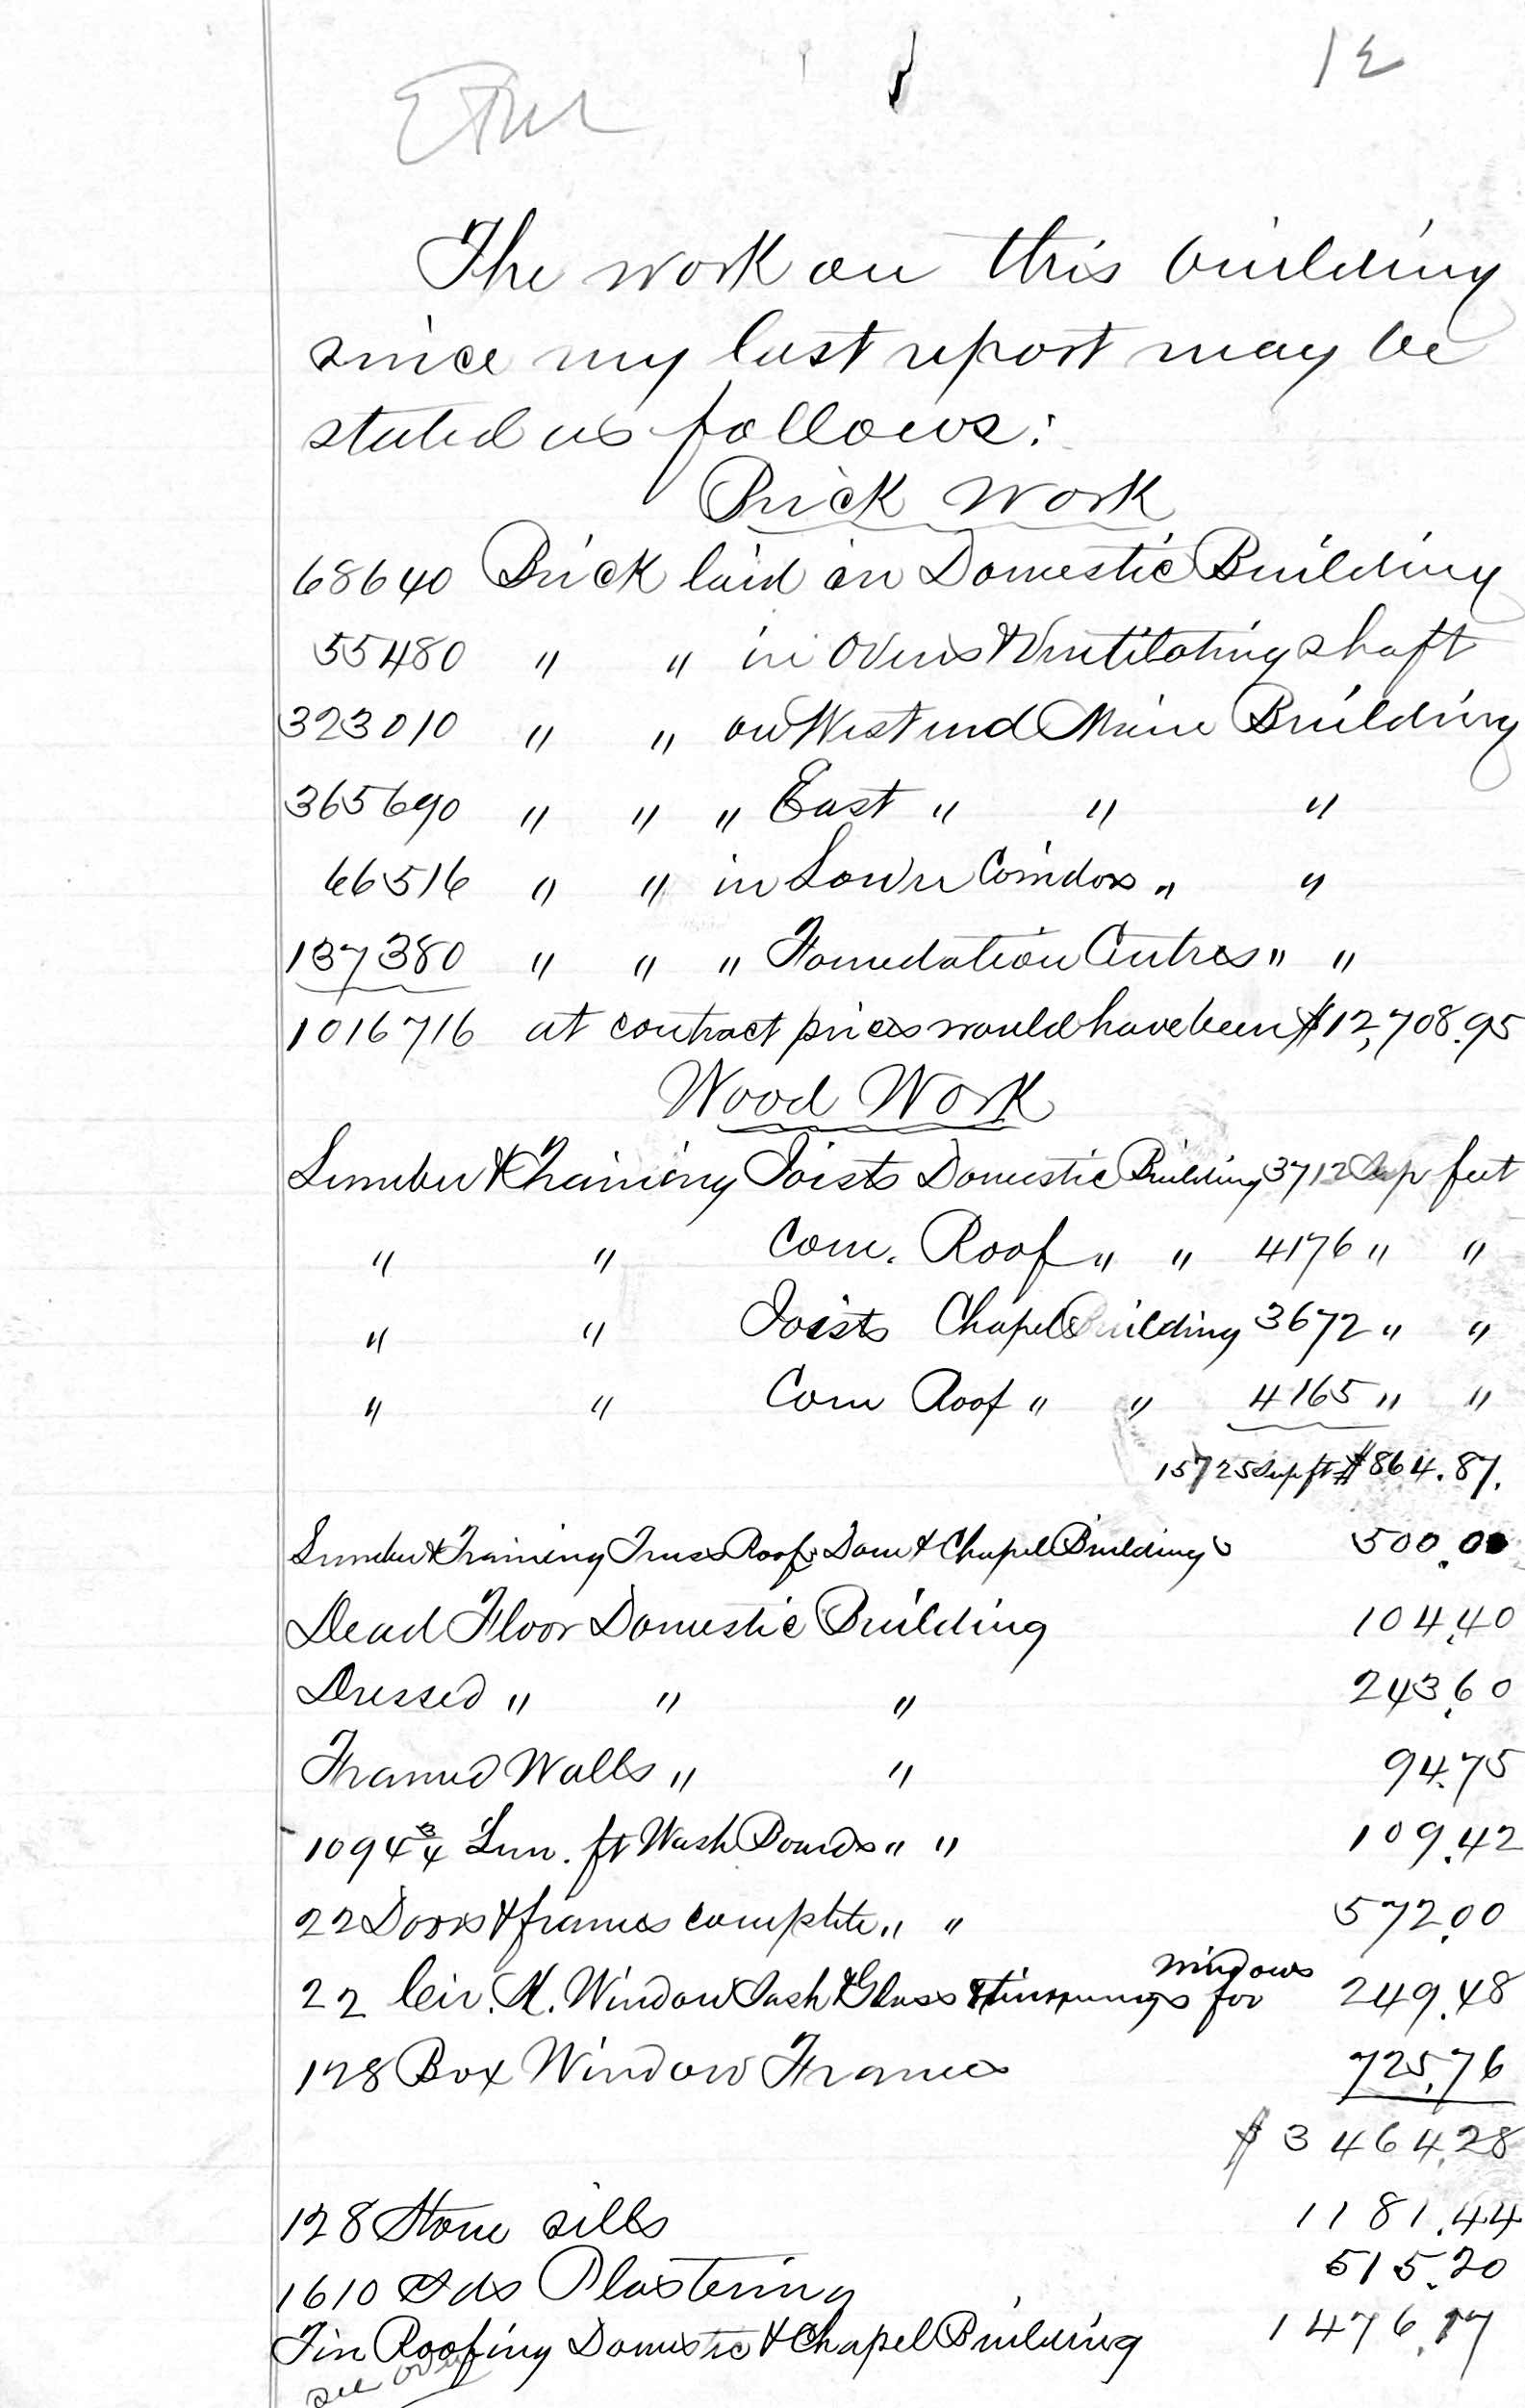 12
The work on this building
since my last report may be
stated as follows:
Brick Work
68640 Brick laid on Domestic Building
55480 " " in Ovens & Ventilating shaft
323010 " " on West end Main Building
365690 " " " East " " "
66516 " " in Lower Corridors " "
137380 " " " Foundation Centres " "
1016716 at contract prices would have been $12,708.95
Wood Work
Lumber & Framing Joists Domestic Building 3712 Sup feet
" " Com. Roof " " 4176 " "
" " Joists Chapel Building 3672 " "
" " Com Roof " " 4165 " "
15725 Sup ft $864.87.
Lumber & Framing Truss Roof Dom & Chapel Buildings 500.00
Dead Floor Domestic Building 104.40
Dressed " " " 243.60
Framed Walls " " 94.75
1094 3/4 Lin. ft Wash Boards " " 109.42
22 Doors & frames complete " " 572.00
22 Cir. H. Window Sash & Glass & trimmings for windows 249.48
128 Box Window Frames 725.76
$3464.28
128 Stone sills 1181.44
1610 Yds Plastering 515.20
Tin Roofing Domestic & Chapel Building 1476.17
see over